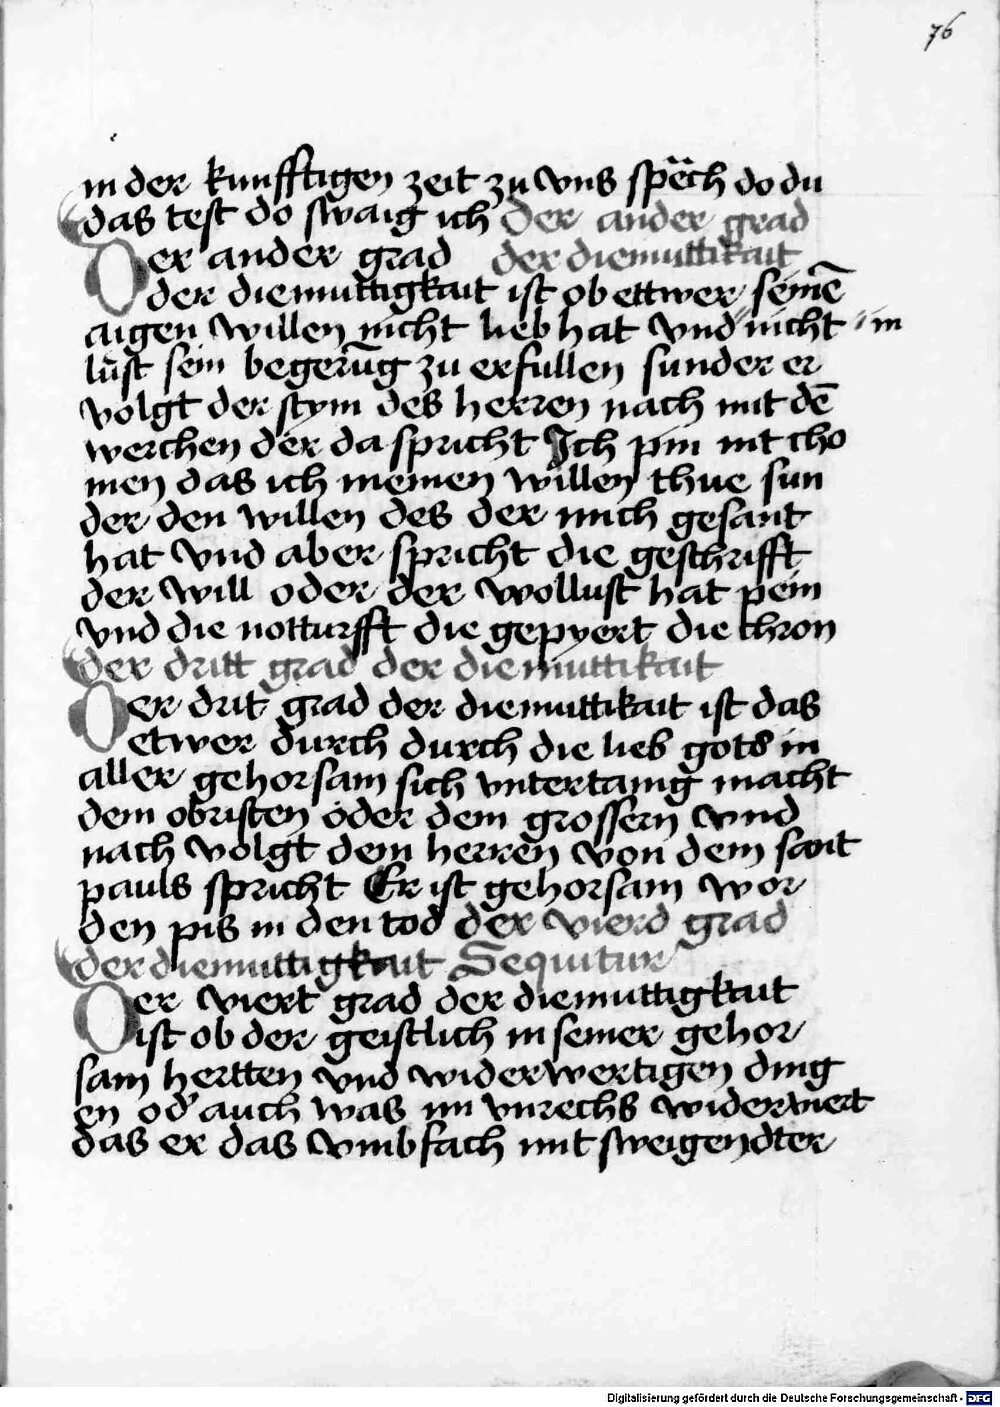 76
in der kunfftigen zeit zu vns spr̈ech do du
das test do swaig ich der ander grad
Der ander grad der diemuttikait
der diemuttigkait ist ob ettwer seinē
aigen willen nicht lieb hat vnd nicht in
lust sein begerūg zu erfullen sunder er
volgt der stym des herren nach mit dē
werchen der da spricht Ich pin nit cho
men das ich meinen willen thue sun
der den willen des der mich gesant
hat vnd aber spricht die geschrifft
der will oder der wollust hat pein
vnd die notturfft die gepyert die chron
der dritt grad der diemuttikait
Der drit grad der diemuttikait ist das
etwer durch durch die lieb gots in
aller gehorsam sich vntertanig macht
dem obristen oder dem grossern vnd
nach volgt dem herren von dem sant
pauls spricht Er ist gehorsam wor
den pis in den tod der vierd grad
der diemuttigkait Sequitur
Der viert grad der diemuttigkait
ist ob der geistlich in seiner gehor
sam hertten vnd widerwertigen ding
en od' auch was im vnrechs widerviert
das er das vmbfach mit sweigendter
Digitalisierung gefördert durch die Deutsche Forschungsgemeinschaft - DFG